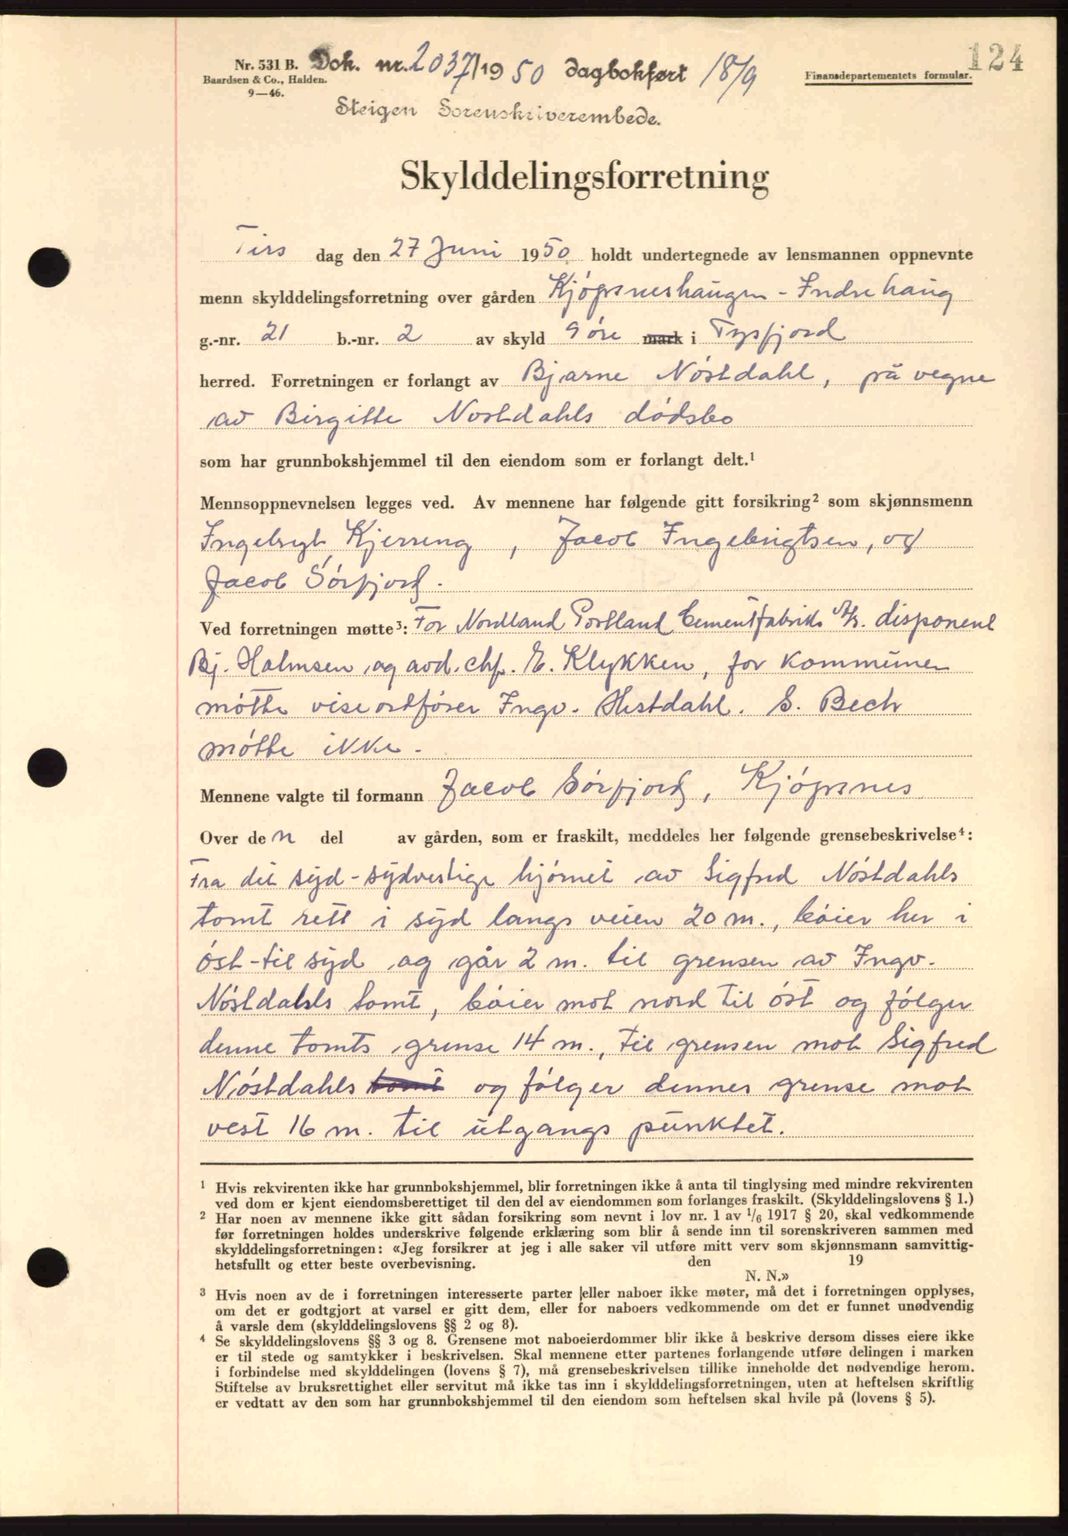 124
Nr. 531 B. Dok. nr. 2037/1950 dagbokført 18/9
Baardsen & Co., Halden. Finansdepartementets formular.
9—46.
Steigen Sorenskriverembede.
Skylddelingsforretning
Tirs dag den 27 Juni 1950. holdt undertegnede av lensmannen oppnevnte
menn skylddelingsforretning over gården Kjöpsneshaugen - Indrehaug
g.-nr. 21 b.-nr. 2 av skyld 9 öre mark i Tysfjord
herred. Forretningen er forlangt av Bjarne Nöstdahl, på vegne
av Birgitte Nöstdahls dödsbo
som har grunnbokshjemmel til den eiendom som er forlangt delt.¹
Mennsoppnevnelsen legges ved. Av mennene har følgende gitt forsikring² som skjønnsmenn
Ingebrigt Kjerreng, Jacob Ingebrigtsen, og
Jacob Sörfjord.
Ved forretningen møtte³: For Nordland Portland Cementfabrik A/s. disponent
Bj. Halmsen og avd. chf. E. Klykken, for kommunen
mötte viseordförer Ingv. Hestdahl. S. Bech
mötte ikke.
Mennene valgte til formann Jacob Sörfjord, Kjöpsnes
Over den del av gården, som er fraskilt, meddeles her følgende grensebeskrivelse⁴:
Fra det syd-sydvestlige hjörnet av Sigfred Nöstdahls
tomt rett i syd langs veien 20 m., böier her i
öst-til syd og går 2 m. til grensen av Ingv.
Nöstdahls tomt, böier mot nord til öst og fölger
denne tomts grense 14 m., til grensen mot Sigfred
Nöstdahls tomt og fölger dennes grense mot
vest 16 m. til utgangspunktet.
¹ Hvis rekvirenten ikke har grunnbokshjemmel, blir forretningen ikke å anta til tinglysing med mindre rekvirenten
ved dom er kjent eiendomsberettiget til den del av eiendommen som forlanges fraskilt. (Skylddelingslovens § 1.)
² Har noen av mennene ikke gitt sådan forsikring som nevnt i lov nr. 1 av 1/6 1917 § 20, skal vedkommende
før forretningen holdes underskrive følgende erklæring som blir å sende inn til sorenskriveren sammen med
skylddelingsforretningen: «Jeg forsikrer at jeg i alle saker vil utføre mitt verv som skjønnsmann samvittig-
hetsfullt og etter beste overbevisning. den 19
N. N.»
³ Hvis noen av de i forretningen interesserte parter eller naboer ikke møter, må det i forretningen opplyses,
om det er godtgjort at varsel er gitt dem, eller for naboers vedkommende om det er funnet unødvendig
å varsle dem (skylddelingslovens §§ 2 og 8).
⁴ Se skylddelingslovens §§ 3 og 8. Grensene mot naboeierdommer blir ikke å beskrive dersom disses eiere ikke
er til stede og samtykker i beskrivelsen. Skal mennene etter partenes forlangende utføre delingen i marken
i forbindelse med skylddelingen (lovens § 7), må grensebeskrivelsen tillike inneholde det nødvendige herom.
Stiftelse av bruksrettighet eller servitut må ikke tas inn i skylddelingsforretningen, uten at heftelsen skriftlig
er vedtatt av den som har grunnbokshjemmel til den eiendom som heftelsen skal hvile på (lovens § 5).